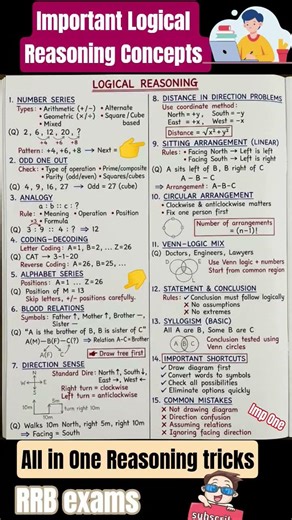 Important Logical
Reasoning Concepts
LOGICAL REASONING
1. NUMBER SERIES
Types: • Arithmetic (+/−) • Alternate
• Geometric (×/÷) • Square/Cube
• Mixed based
(Q) 2, 6, 12, 20, ?
+4 +6 +8
Pattern: +4, +6, +8 → Next =
2. ODD ONE OUT
Check: • Type of operation • Prime/composite
• Parity (odd/even) • Squares/cubes
(Q) 4, 9, 16, 27 → Odd = 27 (cube)
3. ANALOGY
a : b :: c : ?
Rule: • Meaning • Operation • Position
• Formula
(Q) 3 : 9 :: 4 : ? ⇒ 12
4. CODING–DECODING
Letter Coding: A=1, B=2, ... Z=26
(Q) CAT → 3-1-20
Reverse Coding: A=26, B=25, ...
5. ALPHABET SERIES
Positions: A=1 ... Z=26
(Q) Position of M = 13
Skip letters, +/− positions carefully.
6. BLOOD RELATIONS
Symbols: Father↑, Mother↑, Brother −,
Sister −
(Q) "A is the brother of B, B is sister of C"
A(M)−B(F)−C(?) ⇒ Relation A-C = Brother
Draw tree first
7. DIRECTION SENSE
Standard Dire: North↑, South↓,
East→, West←
Right turn = clockwise
Left turn = anticlockwise
(Q) Walks 10m North, right 5m, right 10m
⇒ Facing = South
8. DISTANCE IN DIRECTION PROBLEMS
Use coordinate method:
North = +y, South = −y
East = +x, West = −x
Distance = √x²+y²
9. SITTING ARRANGEMENT (LINEAR)
Rules: • Facing North → Left is left
• Facing South → Left is right
(Q) A sits left of B, B right of C
A − B − C
⇒ Arrangement: A-B-C
10. CIRCULAR ARRANGEMENT
• Clockwise & anticlockwise matters
• Fix one person first
Number of arrangements
= (n−1)!
11. VENN-LOGIC MIX
(Q) Doctors, Engineers, Lawyers
Use Venn logic + numbers
Start from common region
12. STATEMENT & CONCLUSION
Rules: ✓ Conclusion must follow logically
✗ No assumptions
✗ No extremes
13. SYLLOGISM (BASIC)
All A are B, Some B are C
A B C
Conclusion tested using
Venn circles
14. IMPORTANT SHORTCUTS
✓ Draw diagram first
✓ Convert words to symbols
✓ Check all possibilities
✓ Eliminate options quickly
15. COMMON MISTAKES
✗ Not drawing diagram
✗ Direction confusion
✗ Assuming relations
✗ Ignoring facing direction
Imp One
All in One Reasoning tricks
RRB exams